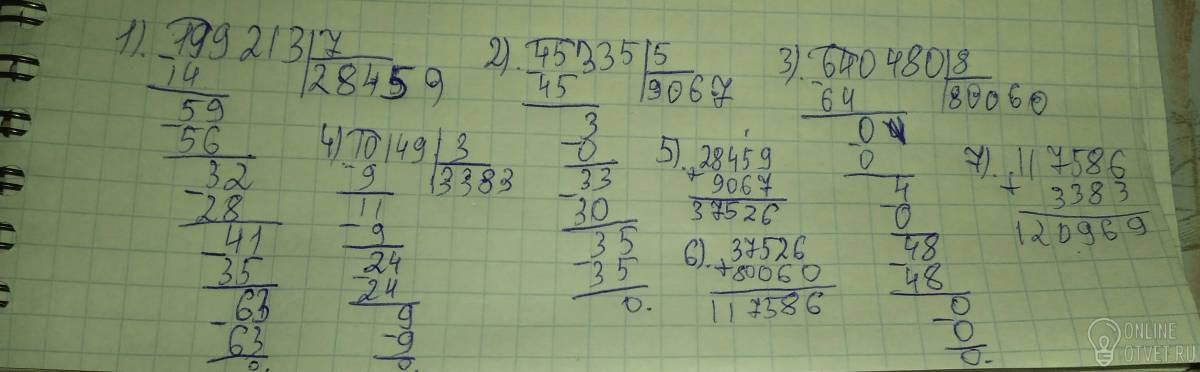 1). 199213 | 7
28459
- 14
59
- 56
32
- 28
41
- 35
63
- 63
0.
2). 45335 | 5
9067
45
3
- 0
33
- 30
35
- 35
0.
3). 640480 | 8
80060
- 64
0
- 0
4
- 0
48
- 48
0
- 0
0.
4) 10149 | 3
3383
- 9
11
- 9
24
- 24
9
- 9
0.
5). 28459
+ 9067
37526
6). 37526
+ 80060
117586
7). 117586
+ 3383
120969
ONLINE
OTVET.RU